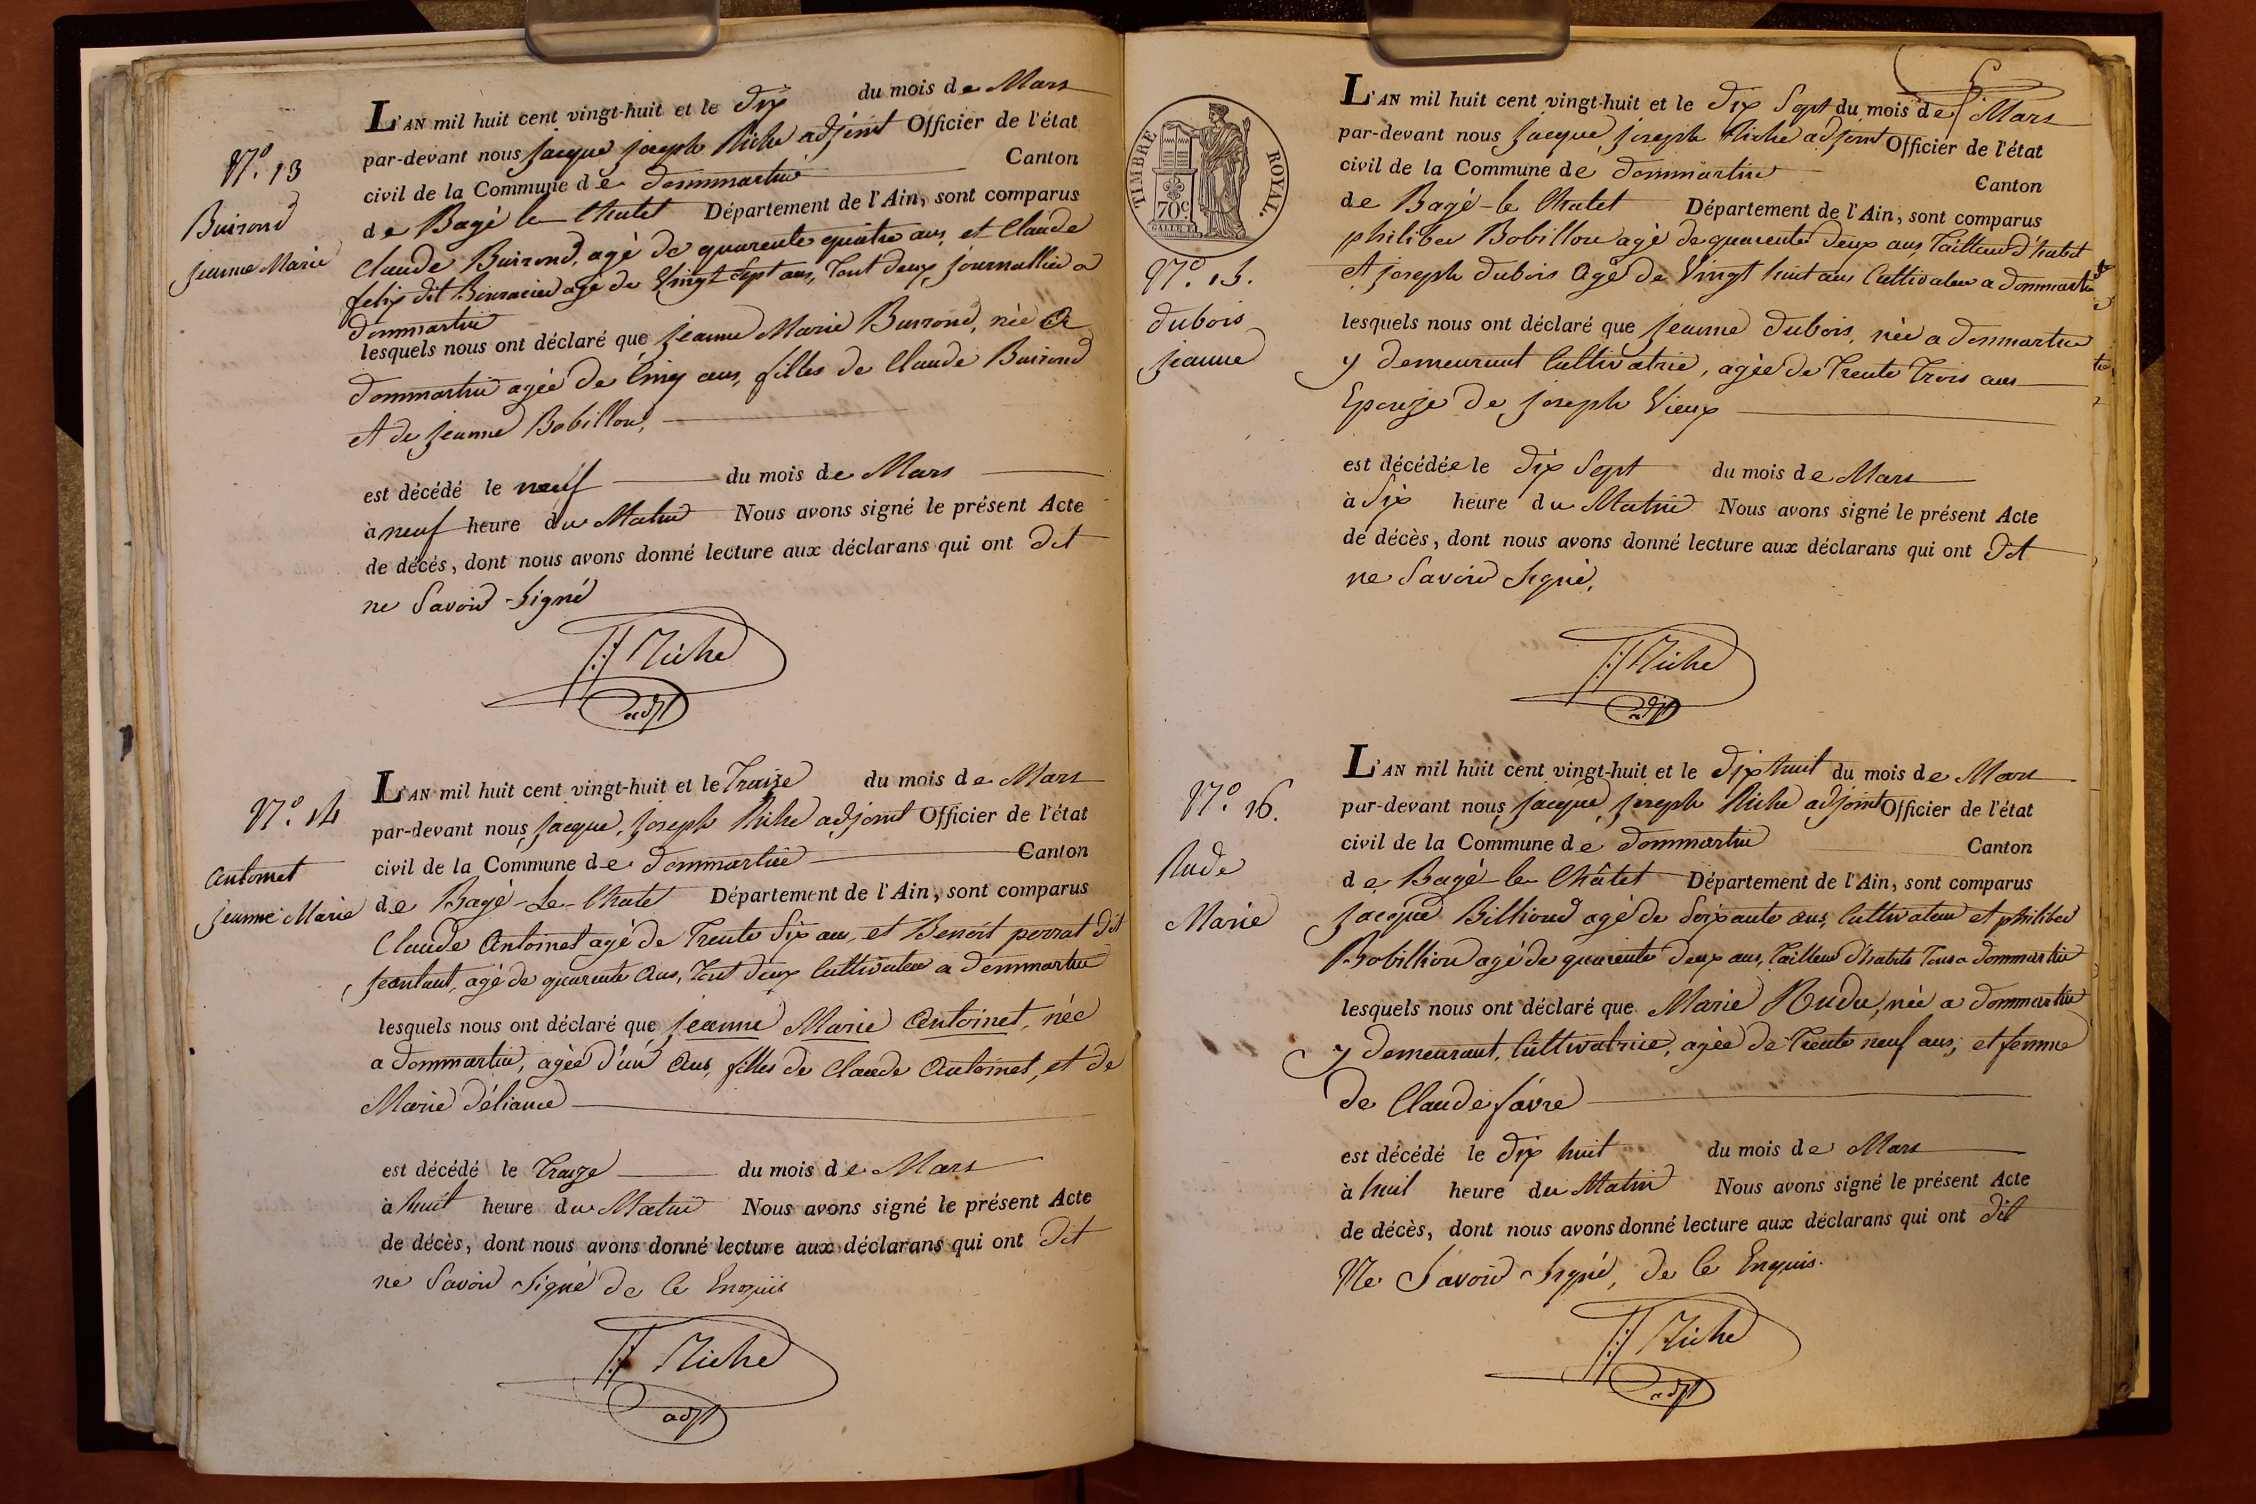 N.o 13
Buirond
jeanne Marie
L'AN mil huit cent vingt-huit et le Dix du mois de Mars
par-devant nous jacque joseph Riche adjoint Officier de l'état
civil de la Commune de dommartin Canton
de Bagé le Chatel Département de l'Ain, sont comparus
Claude Buirond, agé de quarente quatre ans, et Claude
felix dit agé de Vingt Sept ans, Tout deux journallier a
dommartin
lesquels nous ont déclaré que jeanne Marie Buirond, née a
Dommartin agée de Cinq ans, filles de Claude Buirond
et de jeanne Bobillon,
est décédé le neuf du mois de Mars
à neuf heure du Matin Nous avons signé le présent Acte
de décés, dont nous avons donné lecture aux déclarans qui ont dit
ne Savoir Signé
JJ Riche
adjt
N.o 14
Antoinet
jeanne Marie
L'AN mil huit cent vingt-huit et le Traize du mois de Mars
par-devant nous jacque, joseph Riche adjoint Officier de l'état
civil de la Commune de dommartin Canton
de Bagé-Le-Chatel Département de l'Ain, sont comparus
Claude Antoinet agé de Trente Six ans, et Benoit perrat dit
agé de quarente ans, Tout deux Cultivateur a dommartin
lesquels nous ont déclaré que jeanne Marie Antoinet, née
a dommartin, agée d'un ans, filles de Claude Antoinet, et de
Marie Déliance
est décédé le Traize du mois de Mars
à huit heure du Matin Nous avons signé le présent Acte
de décès, dont nous avons donné lecture aux déclarans qui ont dit
ne Savoir Signé de Ce Enquis
JJ Riche
adjt
TIMBRE ROYAL.
70c
N.o 15.
dubois
jeanne
L'AN mil huit cent vingt-huit et le Dix Sept du mois de Mars
par-devant nous jacque, joseph Riche adjoint Officier de l'état
civil de la Commune de dommartin Canton
de Bagé-le Chatel Département de l'Ain, sont comparus
philiber Bobillon agé de quarente deux ans, Tailleur d'habit
et joseph dubois Agé de Vingt huit ans Cultivateur a dommartin
lesquels nous ont déclaré que jeanne dubois, née a dommartin
y demeurant Cultivatrie, agée de Trente Trois ans
Epouze de joseph Vieux
est décédée le Dix Sept du mois de Mars
à Six heure du Matin Nous avons signé le présent Acte
de décès, dont nous avons donné lecture aux déclarans qui ont dit
ne Savoir Signé.
JJ Riche
adjt
N.o 16.
Rude
Marie
L'AN mil huit cent vingt-huit et le Dix huit du mois de Mars
par-devant nous jacque, joseph Riche adjoint Officier de l'état
civil de la Commune de dommartin Canton
de Bagé-le Châtel Département de l'Ain, sont comparus
jacque Billioud agé de Soixante ans, Cultivateur et philiber
Bobillion agé de quarente deux ans, Tailleur d'habits Tous a dommartin
lesquels nous ont déclaré que Marie Rude, née a dommartin
y demeurant, Cultivatrice, agée de Trente neuf ans, et femme
de Claude favre
est décédé le Dix huit du mois de Mars
à huit heure du Matin Nous avons signé le présent Acte
de décès, dont nous avons donné lecture aux déclarans qui ont dit
Ne Savoir Signé, de Ce Enquis.
JJ Riche
adjt